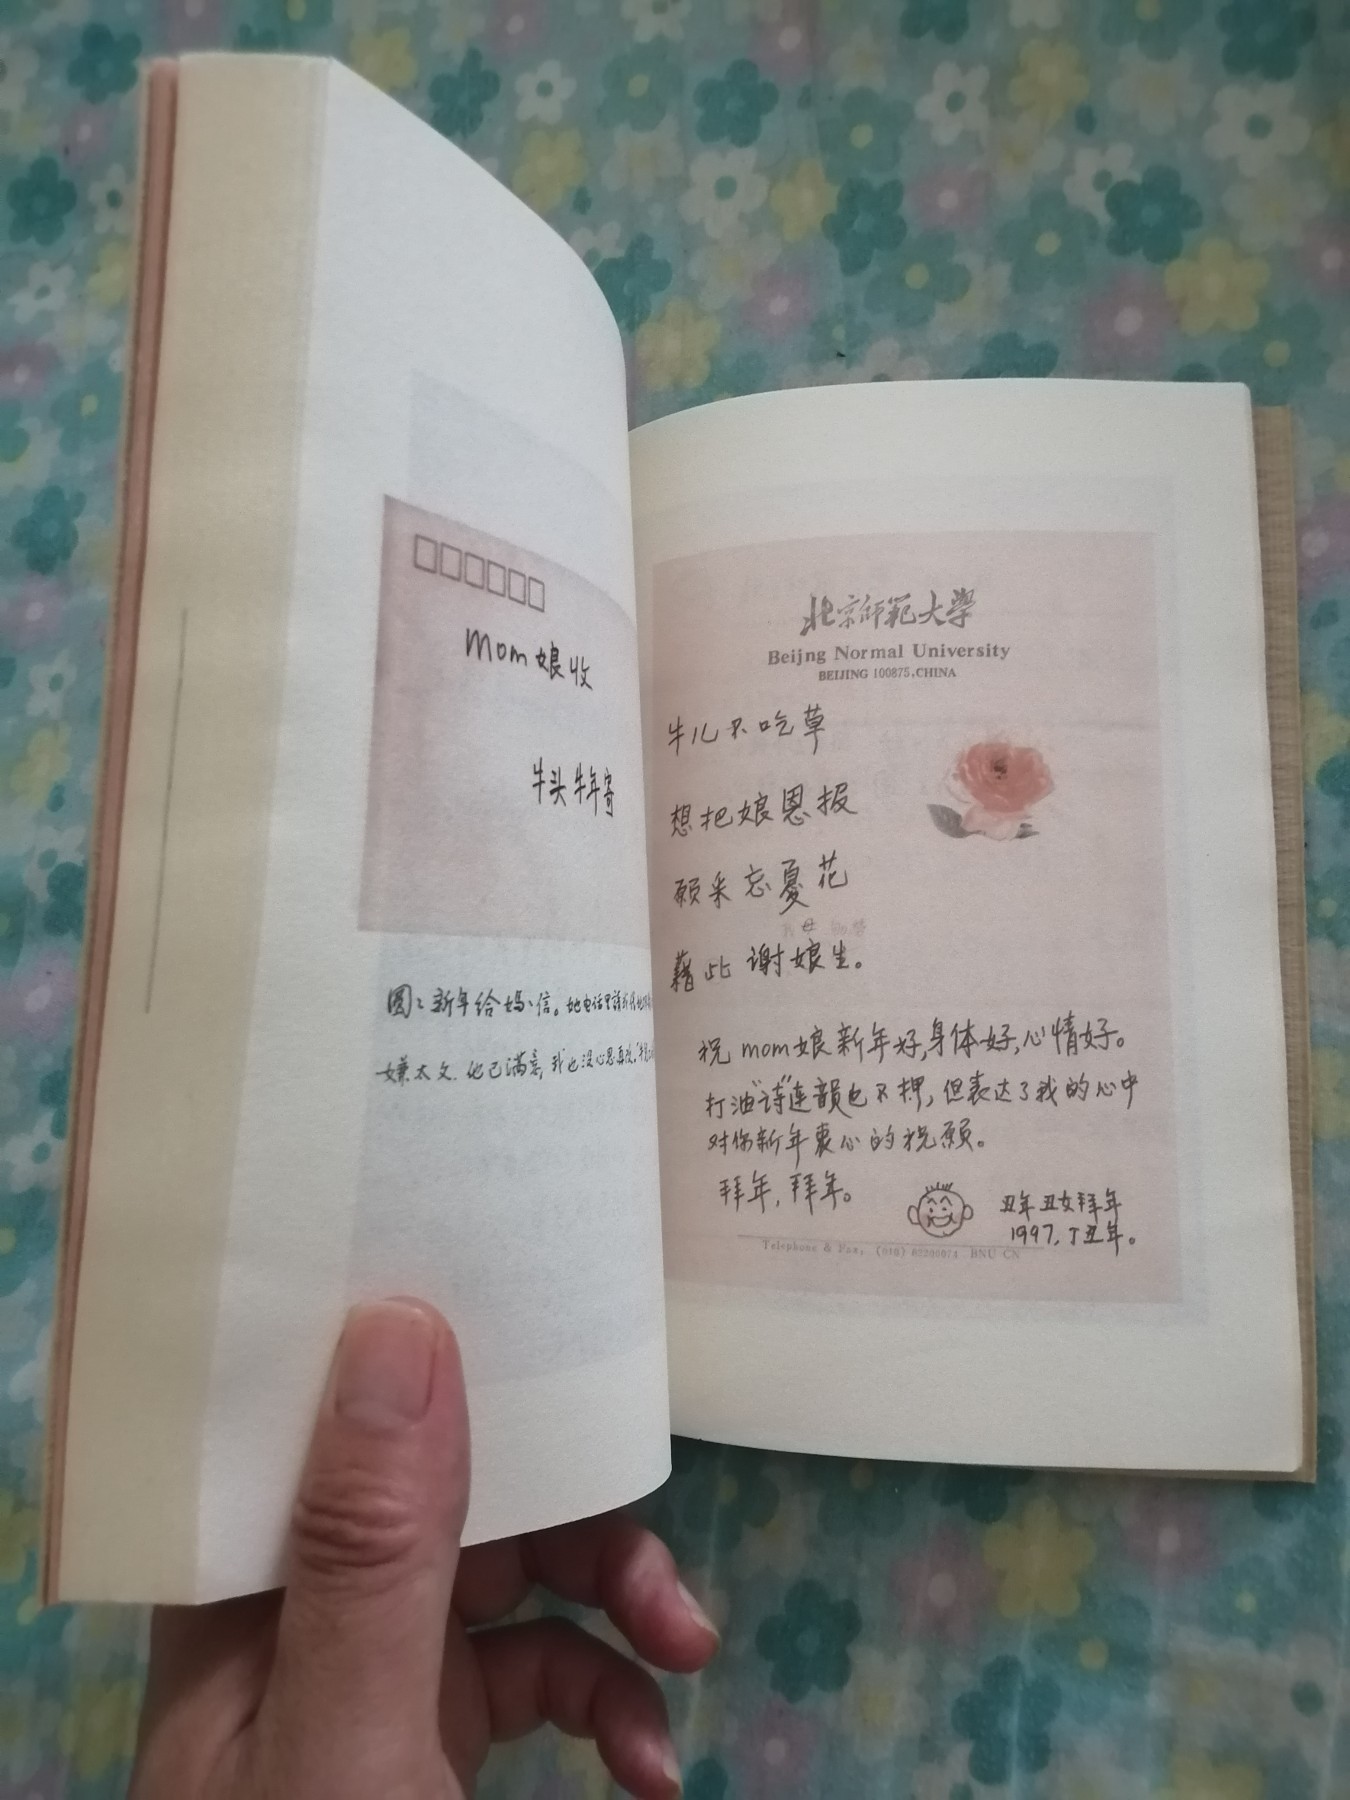 mom娘收
牛头牛年寄
圆圆新年给妈妈信。她电话里
嫌太文.他已满意,我也没心思再改,
北京师範大學
Beijng Normal University
BEIJING 100875,CHINA
牛儿不吃草
想把娘恩报
願采忘憂花
藉此谢娘生。
祝mom娘新年好,身体好,心情好。
打油“诗”连韻也不押,但表达了我的心中
对你新年衷心的祝願。
拜年,拜年。
丑年丑女拜年
1997,丁丑年。
Telephone & Fax: (010) 62200074 BNU CN